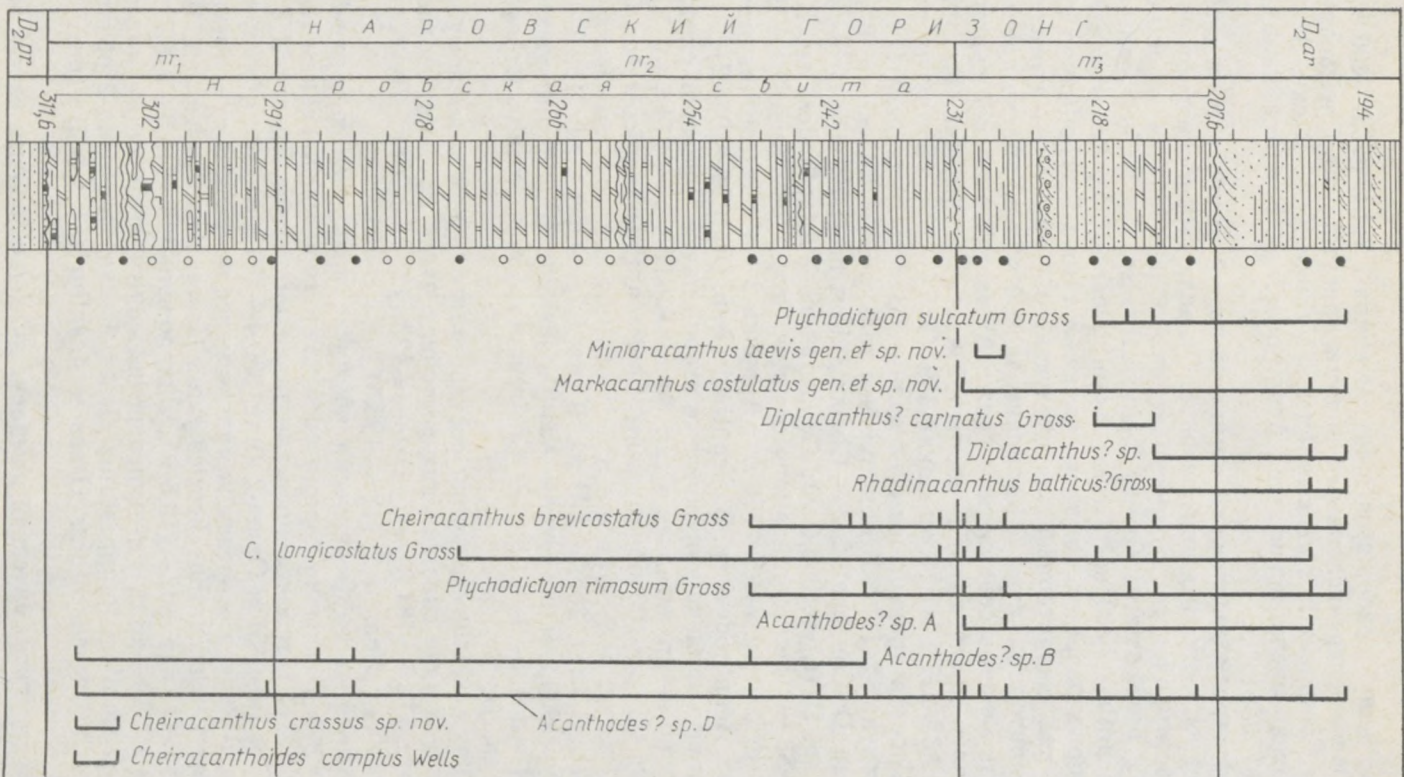 НАРОВСКИЙ ГОРИЗОНТ
D₂pr
D₂ar
nr₁ nr₂ nr₃
Наровская свита
311,6 302 291 278 266 254 242 231 218 207,6 194
Ptychodictyon sulcatum Gross
Minioracanthus laevis gen. et sp. nov.
Markacanthus costulatus gen. et sp. nov.
Diplacanthus? carinatus Gross
Diplacanthus? sp.
Rhadinacanthus balticus? Gross
Cheiracanthus brevicostatus Gross
C. longicostatus Gross
Ptychodictyon rimosum Gross
Acanthodes? sp. A
Acanthodes? sp. B
Acanthodes? sp. D
Cheiracanthus crassus sp. nov.
Cheiracanthoides comptus Wells